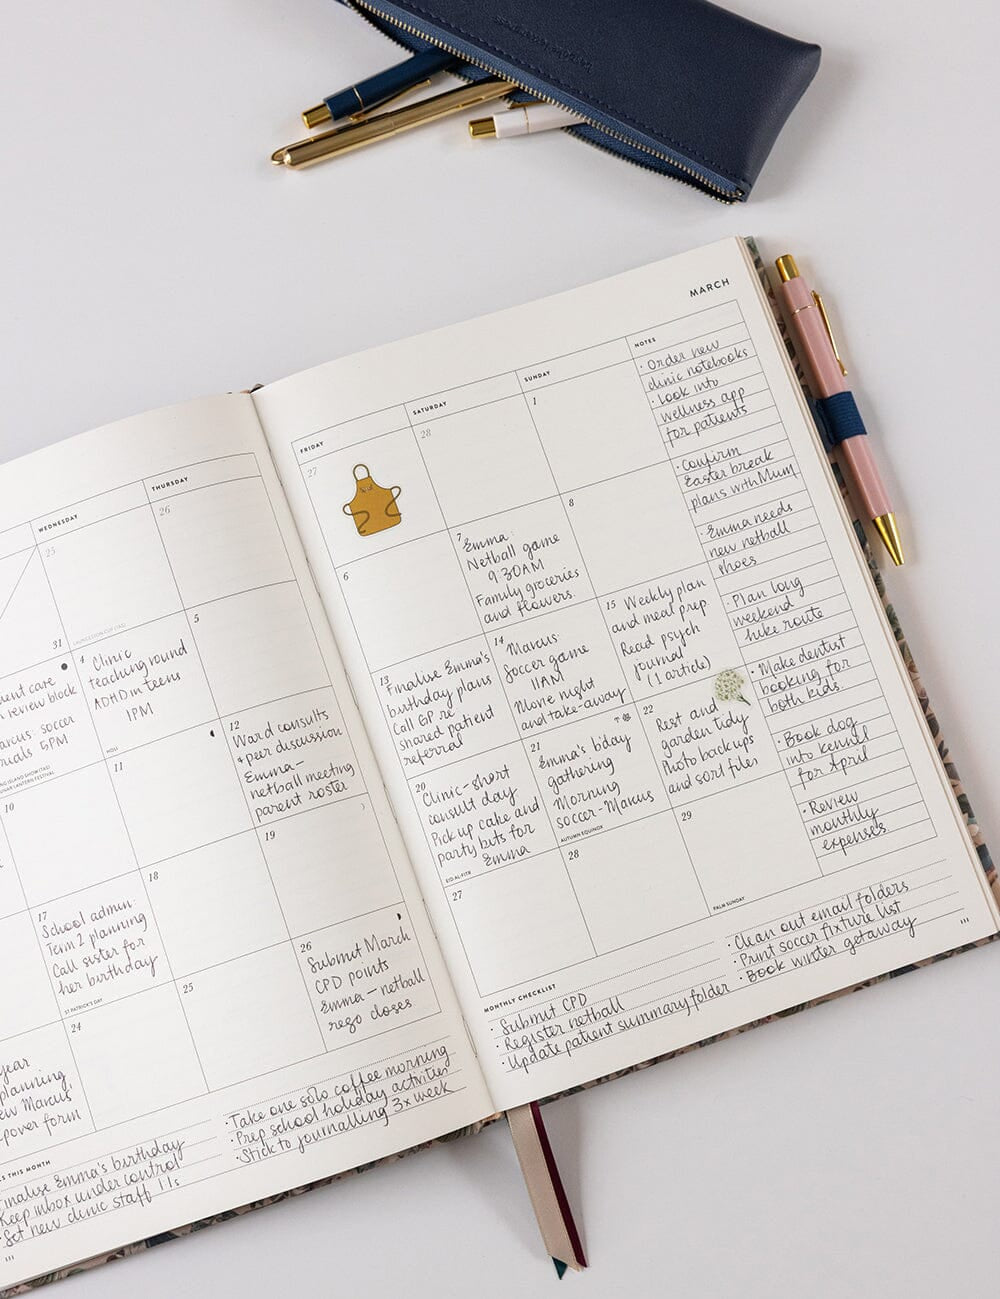 MARCH
WEDNESDAY
THURSDAY
25
26
31
LAUNCESTON CUP (TAS)
4
Clinic
teaching round
ADHD in teens
1PM
5
care
review block
soccer
5PM
HOLI
LANTERN FESTIVAL
10
11
12
Ward consults
+ peer discussion
Emma-
netball meeting
parent roster
17
School admin
Term 2 planning
Call sister for
her birthday
ST PATRICK'S DAY
18
19
24
25
26
Submit March
CPD points
Emma - netball
rego closes
year
planning,
Marcus'
form
THIS MONTH
Emma's birthday
Keep inbox under control
· Set new clinic staff 1:1s
· Take one solo coffee morning
· Prep school holiday activities
· Stick to journalling 3x week
FRIDAY
SATURDAY
SUNDAY
NOTES
27
28
1
6
7
Emma:
Netball game
9:30AM
Family groceries
and flowers.
8
13
Finalise Emma's
birthday plans
Call GP re
shared patient
referral
14
Marcus:
Soccer game
11AM
Movie night
and take-away
15
Weekly plan
and meal prep
Read psych
journal
(1 article)
20
Clinic - short
consult day
Pick up cake and
party bits for
Emma
EID AL-FITR
21
Emma's b'day
gathering
Morning
soccer - Marcus
AUTUMN EQUINOX
22
Rest and
garden tidy
Photo backups
and sort files
27
28
29
PALM SUNDAY
· Order new
clinic notebooks
· Look into
wellness app
for patients
· Confirm
Easter break
plans with Mum
· Emma needs
new netball
shoes
· Plan long
weekend
hike route
· Make dentist
booking for
both kids.
· Book dog
into kennel
for April
· Review
monthly
expenses
MONTHLY CHECKLIST
· Submit CPD
· Register netball
· Update patient summary folder
· Clean out email folders
· Print soccer fixture list
· Book winter getaway